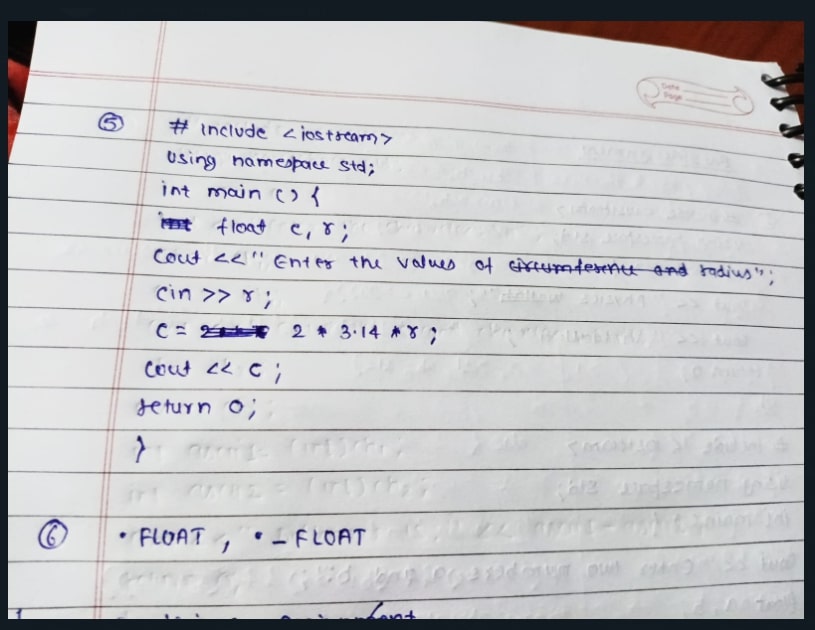 Date
Page
⑤ # include <iostream>
using namespace std;
int main () {
float c, r;
cout << "Enter the values of circumference and radius";
cin >> r;
c = 2 * 3.14 * r;
cout << c;
return 0;
}
⑥ • FLOAT, • _FLOAT